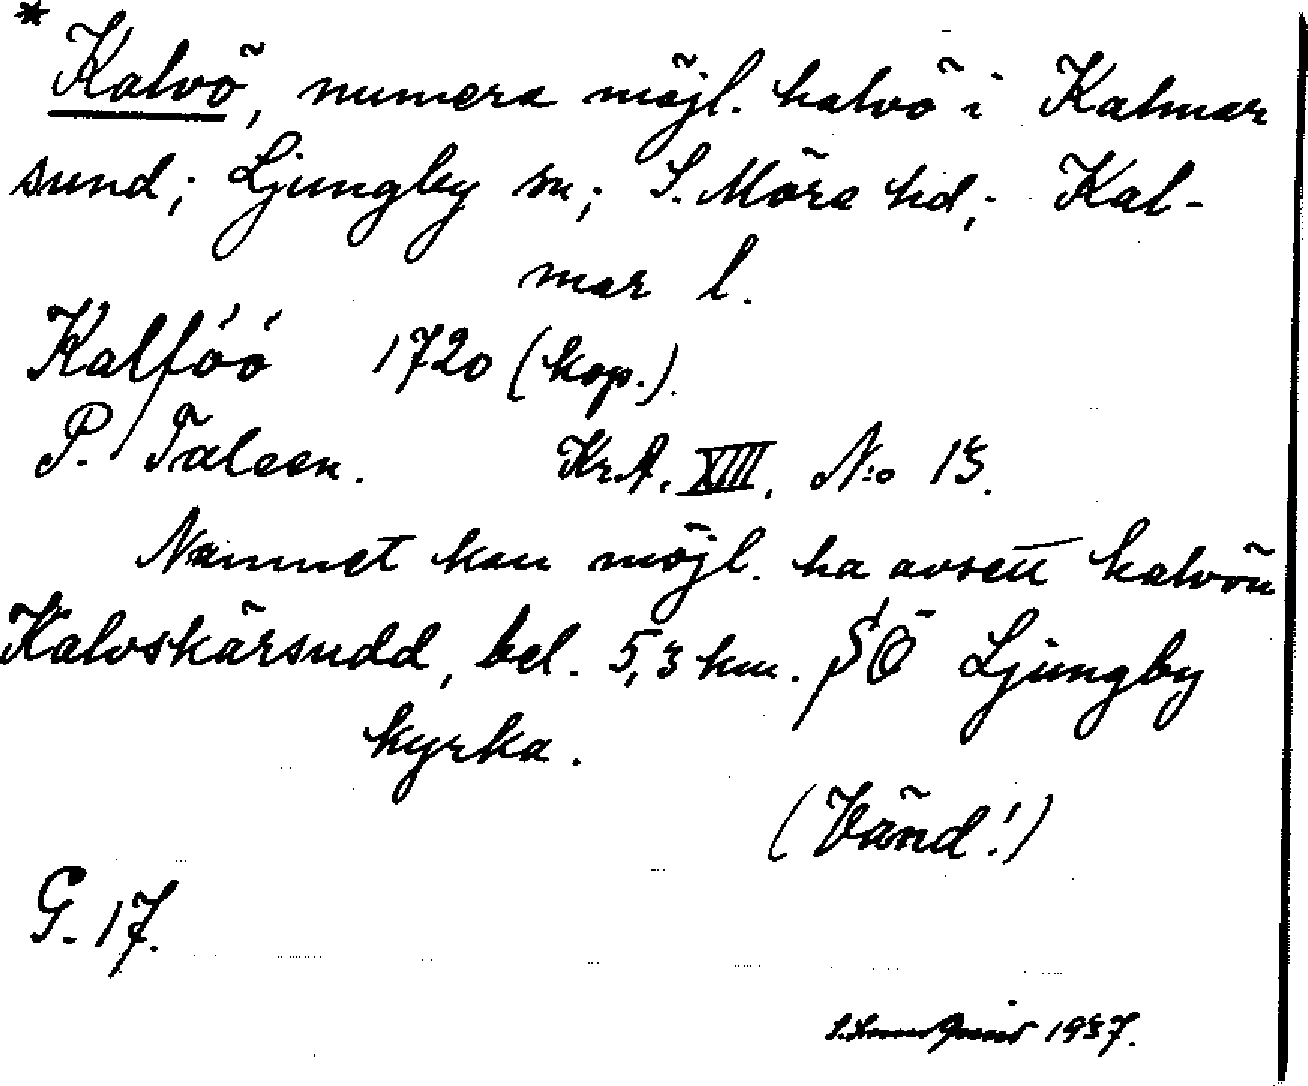 * Kalvö, numera möjl. halvö i Kalmar
sund; Ljungby sn; S. Möre hd; Kal-
mar l.
Kalföó 1720 (kop.).
P. Taleen. Kr.A. XIII. N:o 13.
Namnet kan möjl. ha avsett halvön
Kalvskärsudd, bel. 5,3 km. SÖ Ljungby
kyrka.
(Vänd!)
G. 17.
1937.